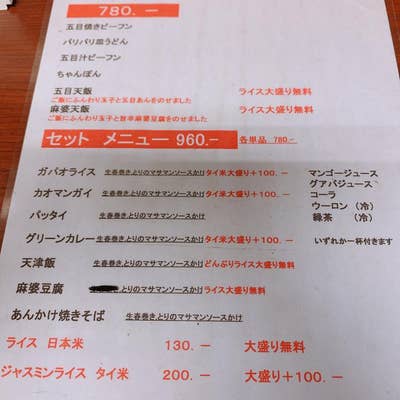 780.－
五目焼きビーフン
パリパリ皿うどん
五目汁ビーフン
ちゃんぽん
五目天飯 ライス大盛り無料
ご飯にふんわり玉子と五目あんをのせました
麻婆天飯 ライス大盛り無料
ご飯にふんわり玉子と旨辛麻婆豆腐をのせました
セット メニュー 960.－ 各単品 780.－
ガパオライス 生春巻き,とりのマサマンソースかけ タイ米大盛り＋100.－ マンゴージュース
グァバジュース
カオマンガイ 生春巻き,とりのマサマンソースかけ タイ米大盛り＋100.－ コーラ
パッタイ 生春巻き,とりのマサマンソースかけ ウーロン （冷）
緑茶 （冷）
グリーンカレー 生春巻き,とりのマサマンソースかけ タイ米大盛り＋100.－ いずれか一杯付きます
天津飯 生春巻き,とりのマサマンソースかけ どんぶりライス大盛り無料
麻婆豆腐 とりのマサマンソースかけ ライス大盛り無料
あんかけ焼きそば 生春巻き,とりのマサマンソースかけ
ライス 日本米 130.－ 大盛り無料
ジャスミンライス タイ米 200.－ 大盛り＋100.－